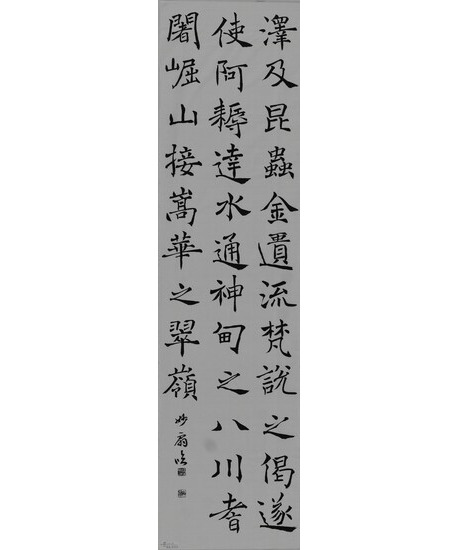 澤及昆蟲金遺流梵說之偈遂
使阿耨達水通神甸之八川耆
闍崛山接嵩華之翠嶺
妙扇臨